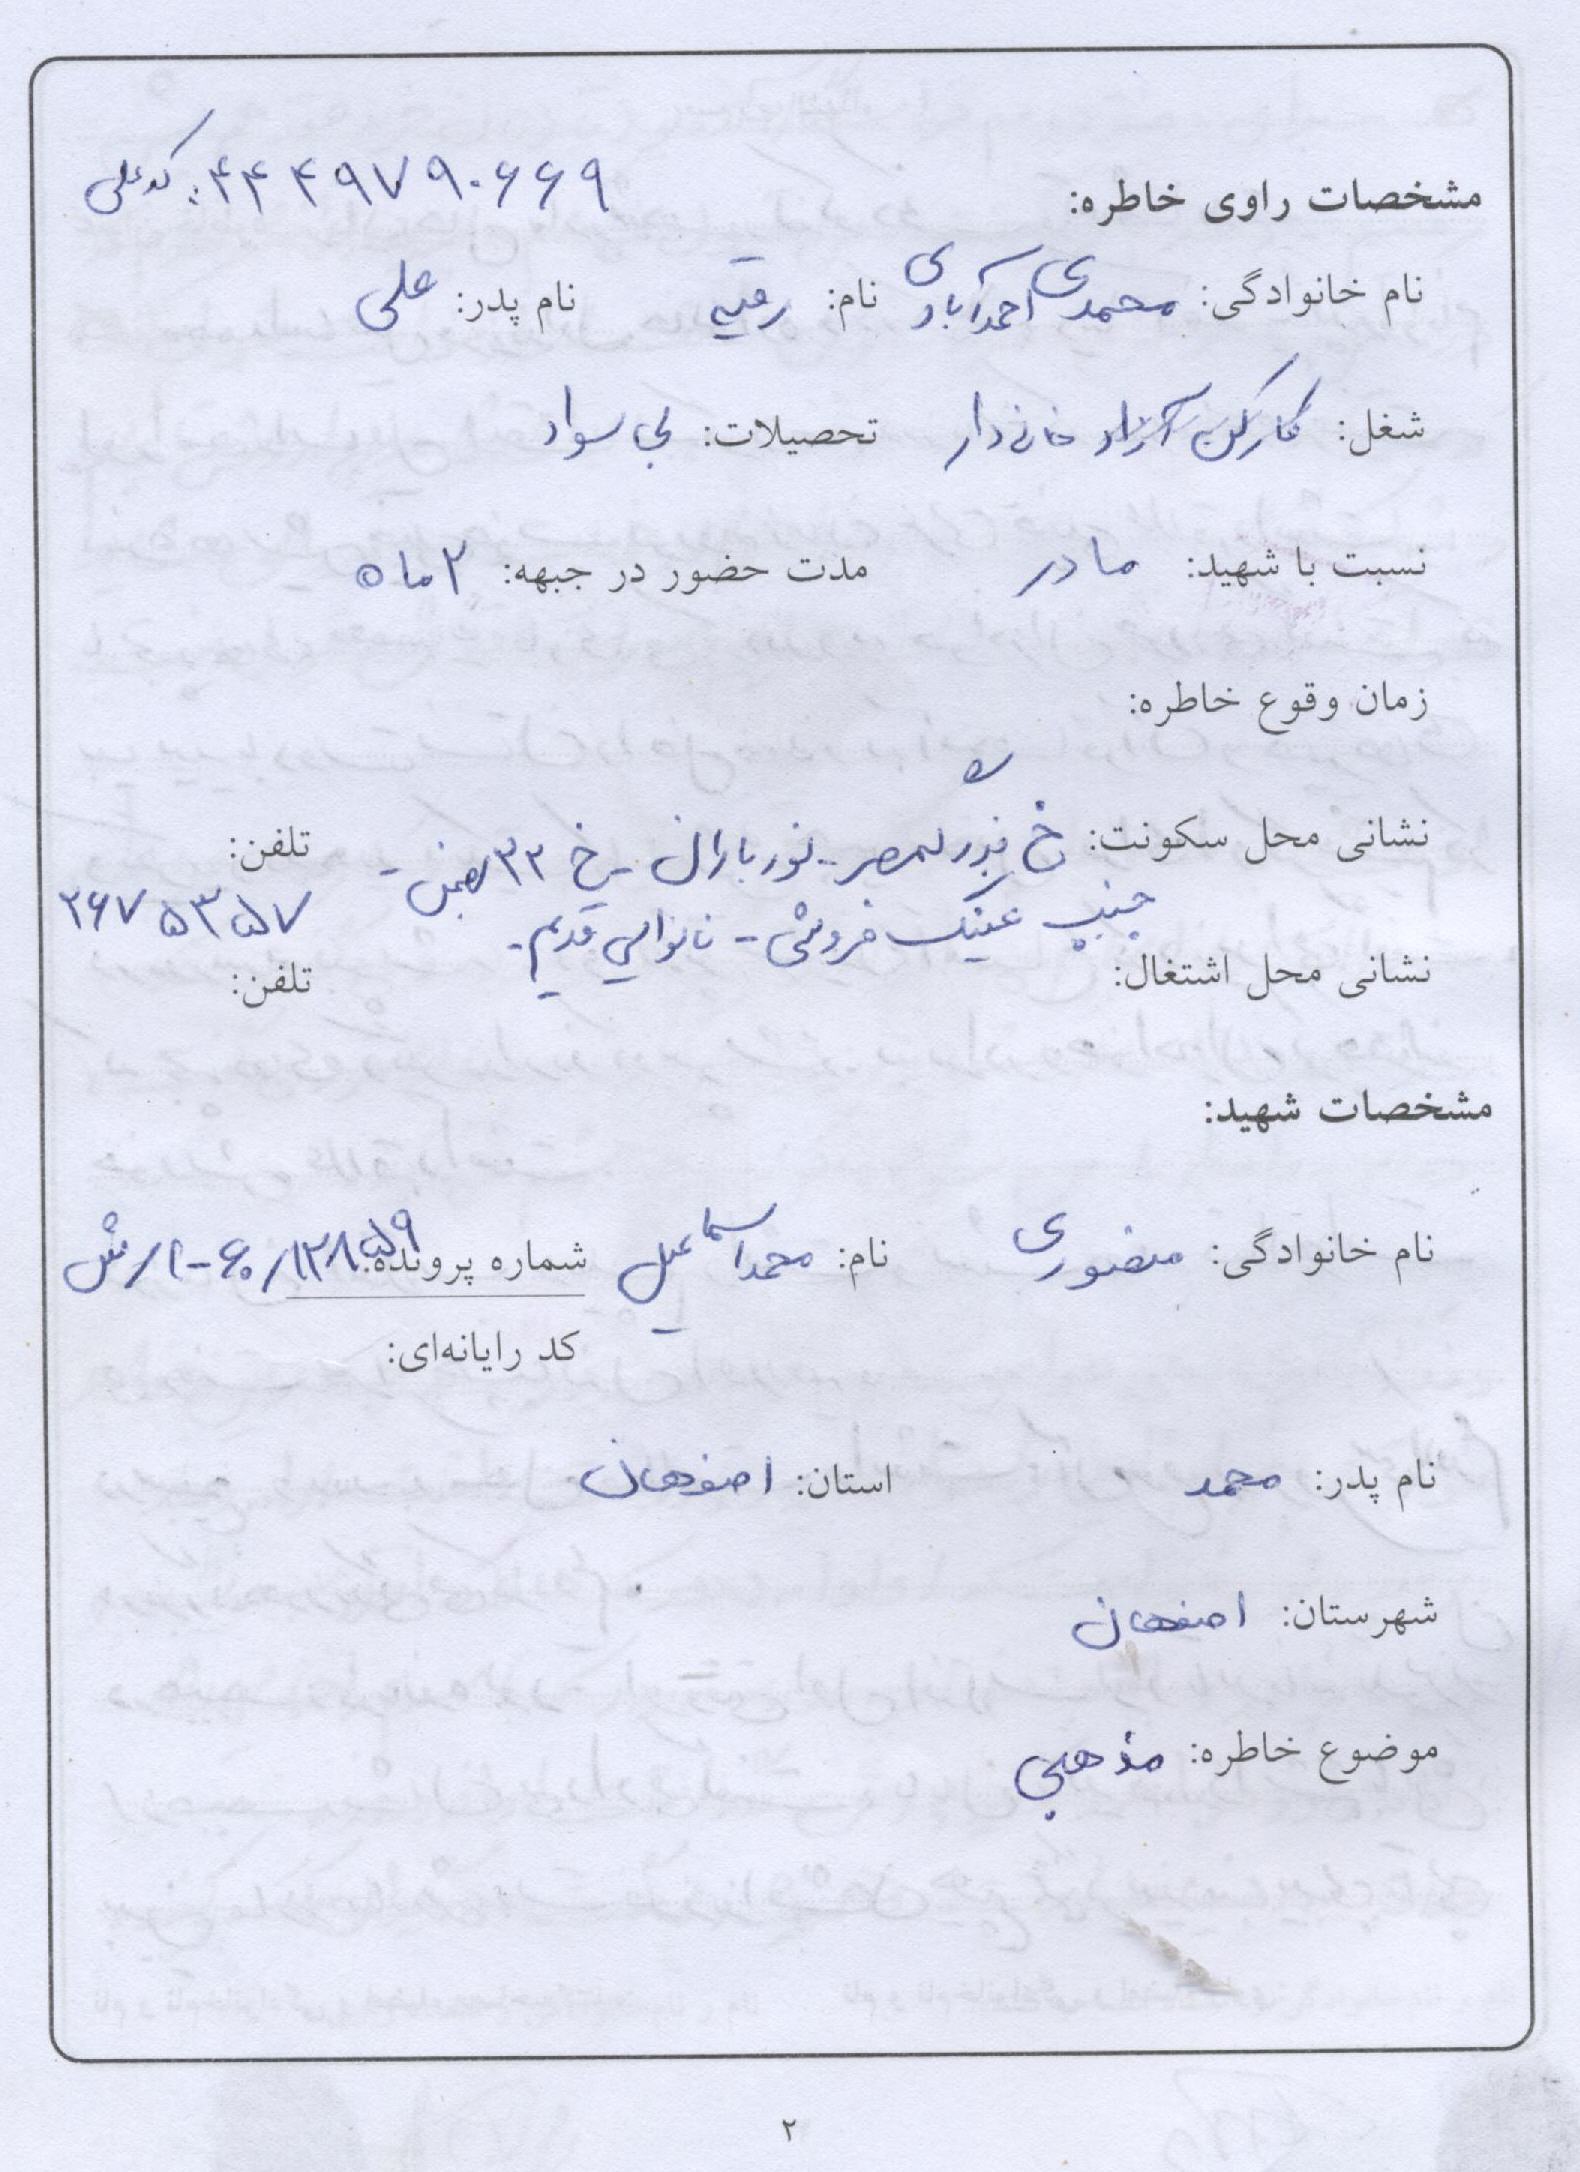 مشخصات راوی خاطره: کد ملی: ۴۴۴۹۷۹۰۶۶۹
نام خانوادگی: محمدی احمدآبادی نام: رقیه نام پدر: علی
شغل: کارگر آزاد خانه‌دار تحصیلات: بی سواد
نسبت با شهید: مادر مدت حضور در جبهه: ۲ ماه
زمان وقوع خاطره:
نشانی محل سکونت: خ - نورباران - خ ۲۲ بهمن - تلفن:
جنب عینک فروشی - نانوایی قدیم - ۲۶۷۵۳۵۷
نشانی محل اشتغال: تلفن:
مشخصات شهید:
نام خانوادگی: منصوری نام: محمد اسماعیل شماره پرونده:
کد رایانه‌ای:
نام پدر: محمد استان: اصفهان
شهرستان: اصفهان
موضوع خاطره: مذهبی
۲